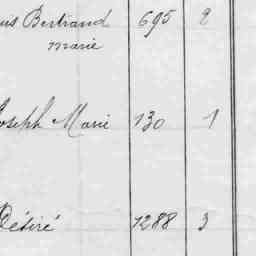 us Bertrand 695 2
marie
Joseph Marie 130 1
Désiré 1288 3